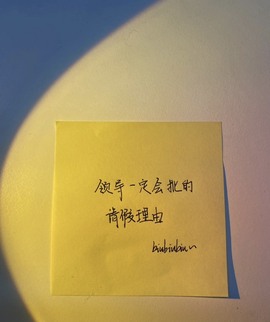 领导一定会批的
请假理由
biubiubiu~